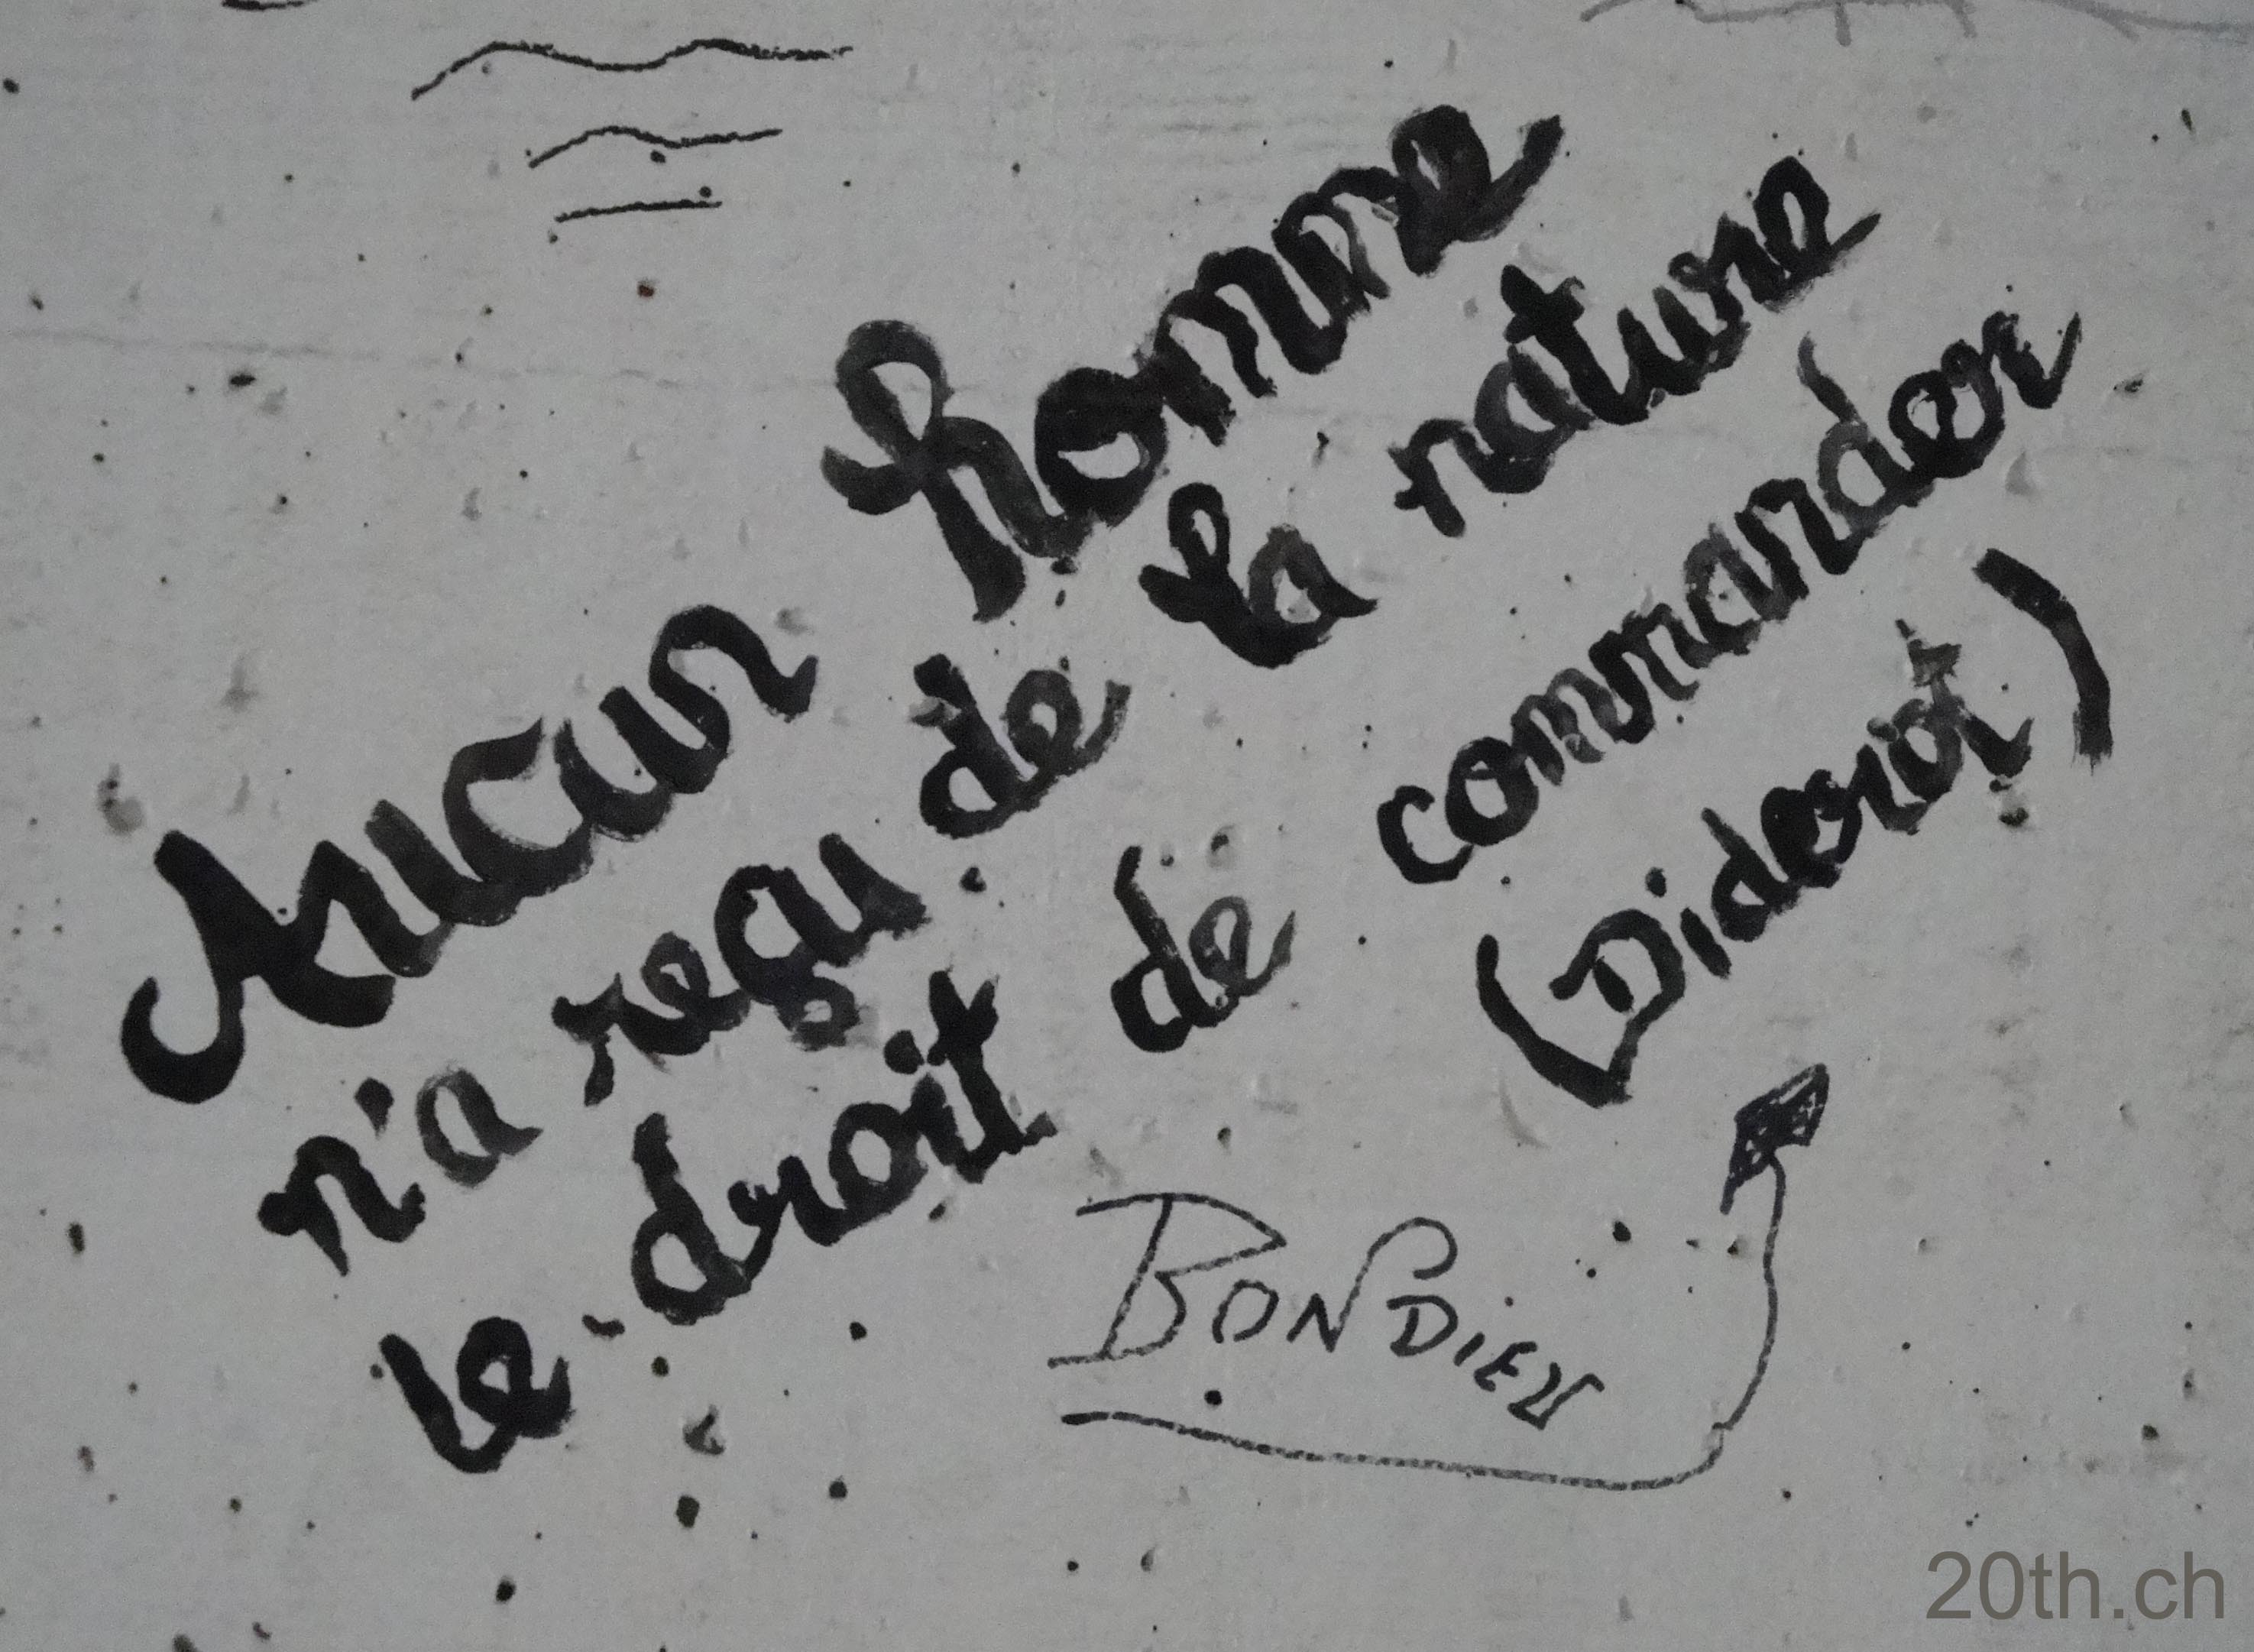 Aucun homme
n'a reçu de la nature
le droit de commander
(Diderot)
BON DIEU
20th.ch